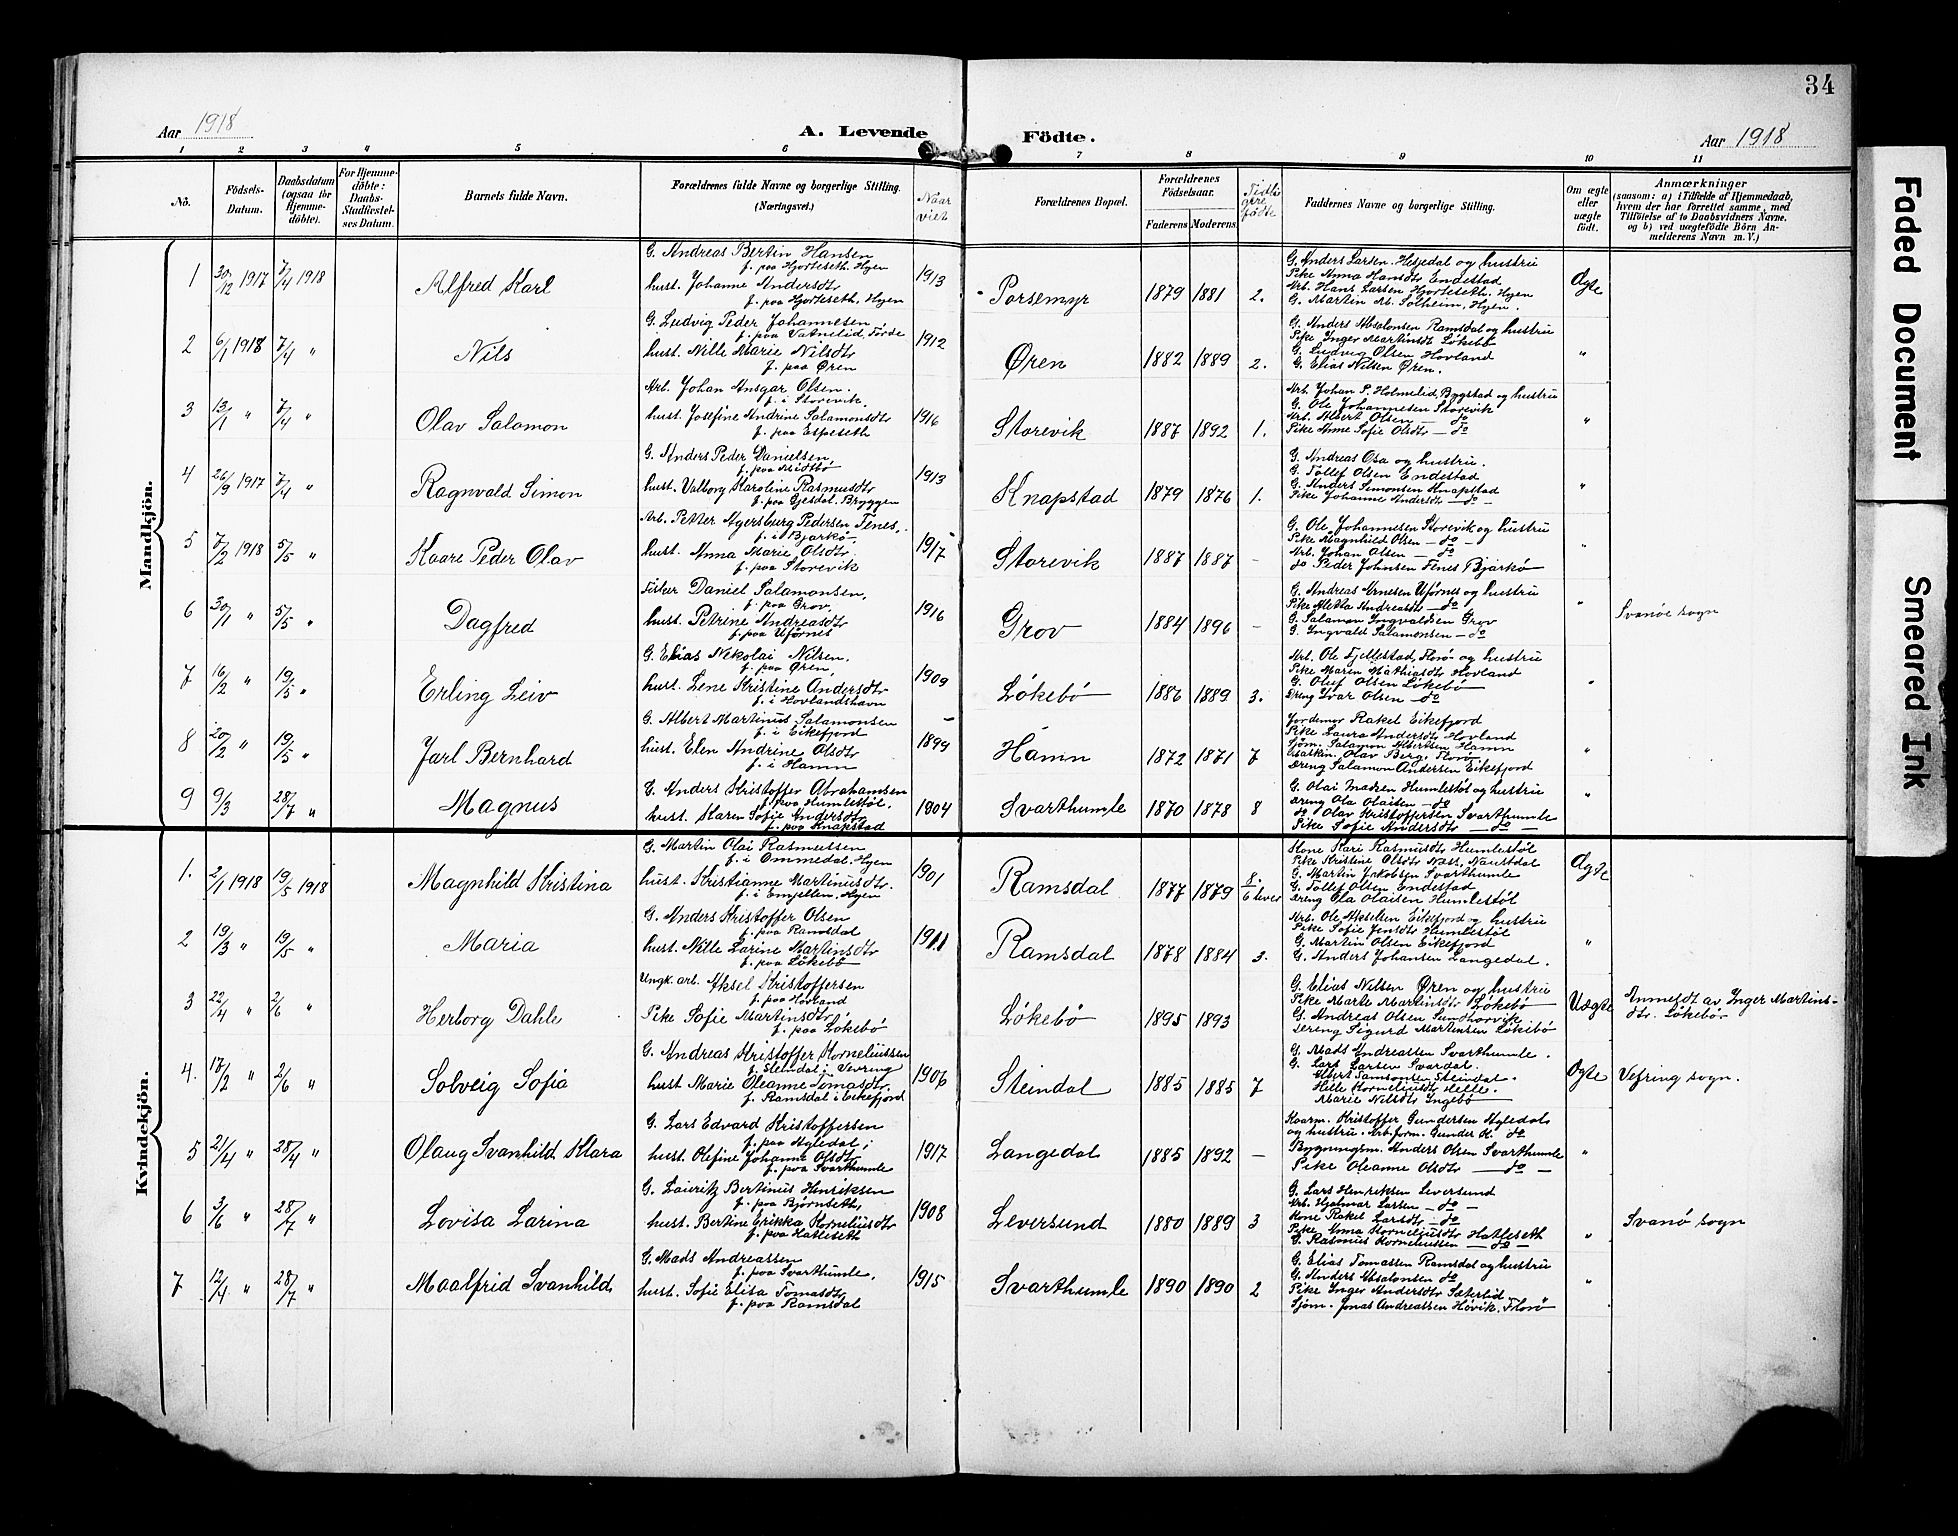 34
Aar 1918
A. Levende Födte.
Aar 1918
1 2 3 4 5 6 7 8 9 10 11
No.
Födsels-Datum.
Daabsdatum (ogsaa for Hjemmedöbte).
For Hjemmedöbte: Daabs-Stadfæstelses Datum.
Barnets fulde Navn.
Forældrenes fulde Navne og borgerlige Stilling. (Næringsvei.)
Naar viet
Forældrenes Bopæl.
Forældrenes Födselsaar.
Faderens Moderens
Tidligere födte
Faddernes Navne og borgerlige Stilling.
Om ægte eller uægte født.
Anmærkninger
(saasom: a) i Tilfælde af Hjemmedaab, hvem der har forrettet samme, med Tilföielse af to Daabsvidners Navne. og b) ved uægtefödte Börn Anmelderens Navn m. V.)
Mandkjön.
1 30/12 1917 7/4 1918 Alfred Karl
G. Andreas Bertin Hansen
f. paa Hjorteseth. Hyen
hust. Johanne Andersdtr
f. paa Hjorteseth, Hyen
1913 Porsemyr 1879 1881 2.
G. Anders Larsen Hesjedal og hustru
Pike Anna Hansdtr Endestad
Arb. Hans Larsen Hjorteseth. Hyen
G. Martin M. Solheim, Hyen.
Ægte
2 6/1 1918 7/4 " Nils
G. Ludvig Peder Johannesen
f. paa Vatnelid, Førde
hust. Nille Marie Nilsdtr
f. paa Øren
1912 Øren 1882 1889 2.
G. Anders Absalonsen Ramsdal og hustru
Pike Inger Martinsdtr Løkebø
G. Ludvig Olsen Hovland
G. Elias Nilsen Øren.
"
3 13/1 " 7/4 " Olav Salomon
Arb. Johan Ansgar Olsen.
f. i Storevik.
hust. Josefine Andrine Salamonsdtr
f. paa Espeseth
1916 Storevik 1887 1892 1.
Arb. Johan P. Holmelid, Bygstad og hustru
G. Ole Johannesen Storevik
Arb. Albert Olsen — do
Pike Anne Sofie Olsdtr — do
"
4 26/9 1917 7/4 " Ragnvald Simon
G. Anders Peder Danielsen,
f. paa Midtbø
hust. Valborg Karoline Rasmusdtr
f. paa Gjesdal, Bryggen
1913 Knapstad 1879 1876 1.
G. Andreas Osa og hustru.
G. Tollef Olsen Endestad
G. Anders Simonsen Knapstad
Pike Johanne Andersdtr — do —
"
5 7/2 1918 5/5 " Kaare Peder Olav
Arb. Petter Agersburg Pedersen Fenes,
f. i Bjarkø
hust. Anna Marie Olsdtr.
f. paa Storevik
1917 Storevik 1887 1887 -
G. Ole Johannesen Storevik og hustru
Pike Magnhild Olsen — do —
Arb. Johan Olsen — do
do Peder Johnsen Fenes Bjarkø
"
6 30/1 " 5/5 " Dagfred
Fisker Daniel Salamonsen,
f. paa Grov,
hust. Petrine Andreasdtr
f. paa Uførnes
1916 Grov 1884 1896 -
G. Andreas Arnesen Uførnes og hustru
Pike Metta Andreasdtr — do
G. Salamon Ingvaldsen Grov
G. Ingvald Salamonsen — do
"
Svanøe sogn
7 16/2 " 19/5 " Erling Leiv
G. Elias Nikolai Nilsen,
f. paa Øren,
hust. Lene Kristine Andersdtr
f. i Hovlandshavn
1909 Løkebø 1886 1889 3.
Arb. Ole Fjellestad, Florø og hustru
Pike Maren Mathiasdtr Hovland
G. Oluf Olsen Løkebø
Dreng Ivar Olsen — do
"
8 20/2 " 19/5 " Jarl Bernhard
G. Albert Martinus Salamonsen
f. i Eikefjord
hust. Elen Andrine Olsdtr
f. i Hamn
1899 Hamn 1872 1871 7
Jordemor Rakel Eikefjord
Pike Laura Andersdtr Hovland
Sjøm. Salamon Albertsen Hamn
Maskin. Olav Berg, Florø
Dreng Salamon Andersen Eikefjord
"
9 9/3 28/7 " Magnus
G. Anders Kristoffer Abrahamsen
f. paa Humlestøl.
hust. Karen Sofie Andersdtr
f. paa Knapstad
1904 Svarthumle 1870 1878 8
G. Olai Madsen Humlestøl og hustru
Dreng Ola Olaisen — do
do Olav Kristoffersen Svarthumle
Pike Sofie Andersdtr — do —
"
Kvindekjön.
1. 2/1 1918 19/5 1918 Magnhild Kristina
G. Martin Olai Rasmussen
f. i Ommedal. Hyen
hust. Kristianne Martinusdtr.
f. i Emjellen, Hyen
1901 Ramsdal 1877 1879 8. 6 lever
Kone Kari Rasmusdtr Humlestøl
Pike Kristine Olsdtr Nast, Naustdal
G. Martin Jakobsen Svarthumle
G. Tollef Olsen Endestad
Dreng Ola Olaisen Humlestøl
Ægte
2 19/3 " 19/5 " Maria
G. Anders Kristoffer Olsen
f. paa Ramsdal
hust. Nille Larine Martinsdtr
f. paa Løkebø
1911 Ramsdal 1878 1884 3.
Arb. Ole Akselsen Eikefjord og hustru
Pike Sofie Jensdtr Humlestøl
G. Martin Olsen Eikefjord
G. Anders Johansen Langedal.
"
3 22/4 " 2/6 " Herborg Dahle
Ungk. arb. Aksel Kristoffersen
f. paa Hovland
Pike Sofie Martinsdtr,
f. paa Løkebø
Løkebø 1895 1893
G. Elias Nilsen Øren og hustru
Pike Marte Martinsdtr Løkebø
G. Andreas Olsen Sundhorvik
Dreng Sigurd Martinsen Løkebø
Uægte
Anmeldt av Inger Martins-
dtr. Løkebø.
4. 17/2 " 2/6 " Solveig Sofia
G. Andreas Kristoffer Korneliussen
f. Steindal i Vevring
hust Marie Oleanne Tomasdtr.
f. Ramsdal i Eikefjord
1906 Steindal 1885 1885 7
G. Mads Andreassen Svarthumle.
G. Lars Larsen Svardal.
Albert Samsonsen Steindal.
Helle Korneliusdtr Helle.
Marie Nilsdtr Ingebø
Ægte
Vefring sogn.
5 21/4 " 28/4 " Olaug Svanhild Klara
G. Lars Edvard Kristoffersen
f. paa Hyledal;
hust. Olefine Johanne Olsdtr
f. paa Svarthumle
1917 Langedal 1885 1892 —
Kaarm. Kristoffer Gundersen Hyledal
og hustru. Arb.form. Gunder K. do
Bygningsm. Anders Olsen Svarthumle
Pike Oleanne Olsdtr — do —
"
6 3/6 " 28/7 " Lovisa Larina
G. Lauritz Bertinus Henriksen
f. paa Bjørnseth,
hust. Bertine Grikka Korneliusdtr
f. paa Hatleseth
1908 Leversund 1880 1889 3
G. Lars Henriksen Leversund
Arb. Hjalmar Larsen — do —
Kone Rakel Larsdtr — do
Pike Anna Korneliusdtr Hatleseth
G. Rasmus Korneliussen — do —
"
Svanø sogn
7 12/4 " 28/7 " Maalfrid Svanhild
G. Mads Andreassen
f. paa Svarthumle,
hust. Sofie Elisa Tomasdtr
f. paa Ramsdal
1915 Svarthumle 1890 1890 2
G. Elias Tomassen Ramsdal og hustru
G. Anders Absalonsen do
Pike Inger Andersdtr Sæterlid
Sjøm. Jonas Andreassen Høvik, Florø
"
Faded Document
Smeared Ink